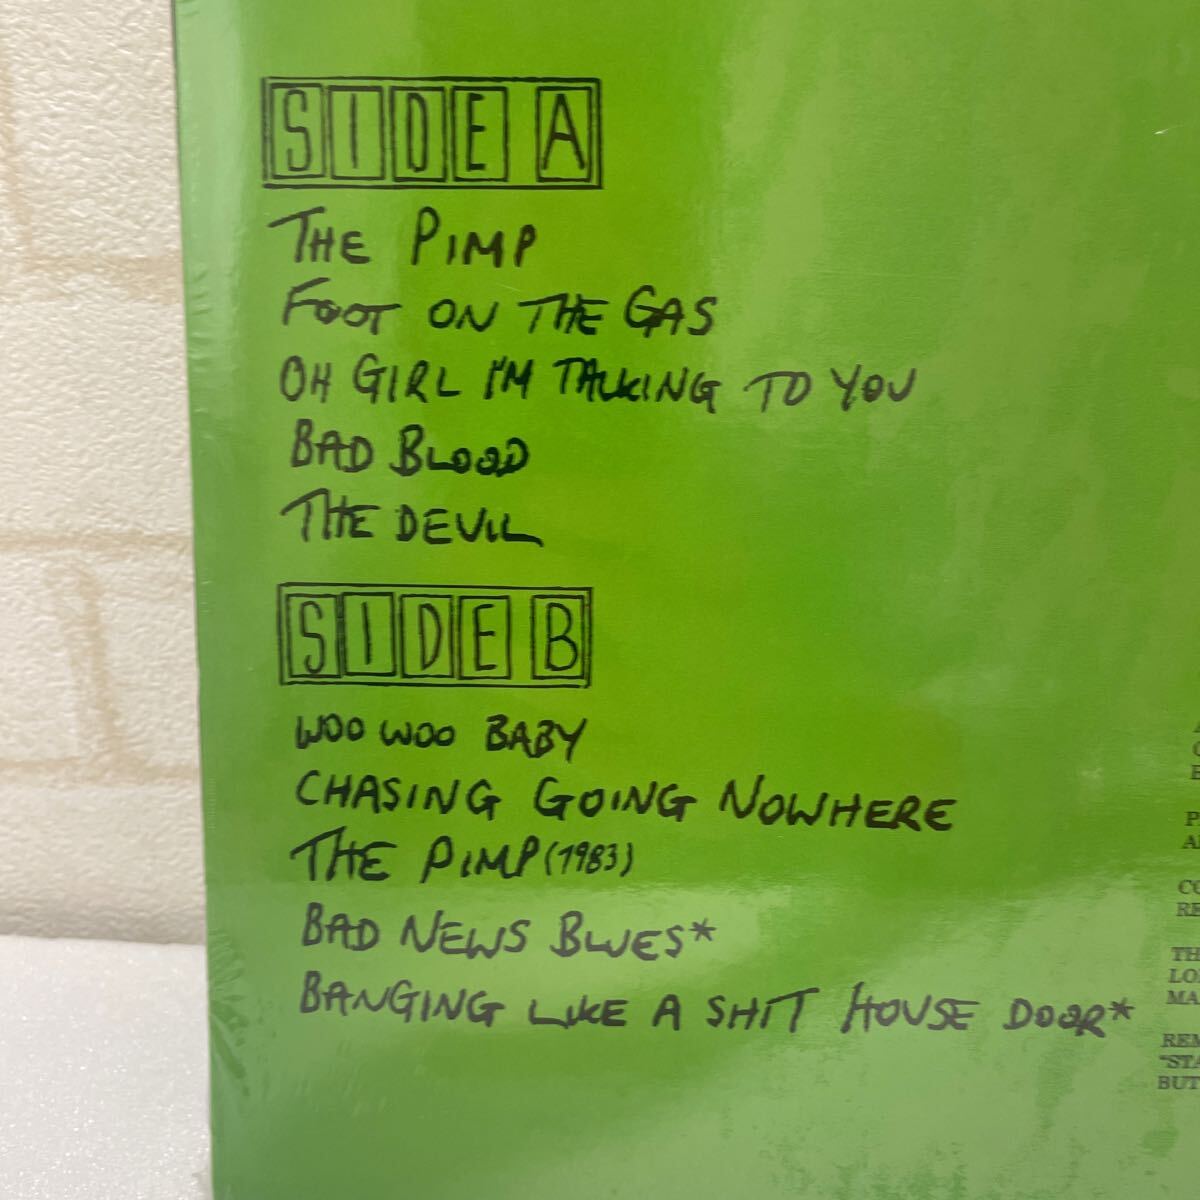 SIDE A
THE PIMP
FOOT ON THE GAS
OH GIRL I'M TALKING TO YOU
BAD BLOOD
THE DEVIL
SIDE B
WOO WOO BABY
CHASING GOING NOWHERE
THE PIMP (1983)
BAD NEWS BLUES*
BANGING LIKE A SHIT HOUSE DOOR*